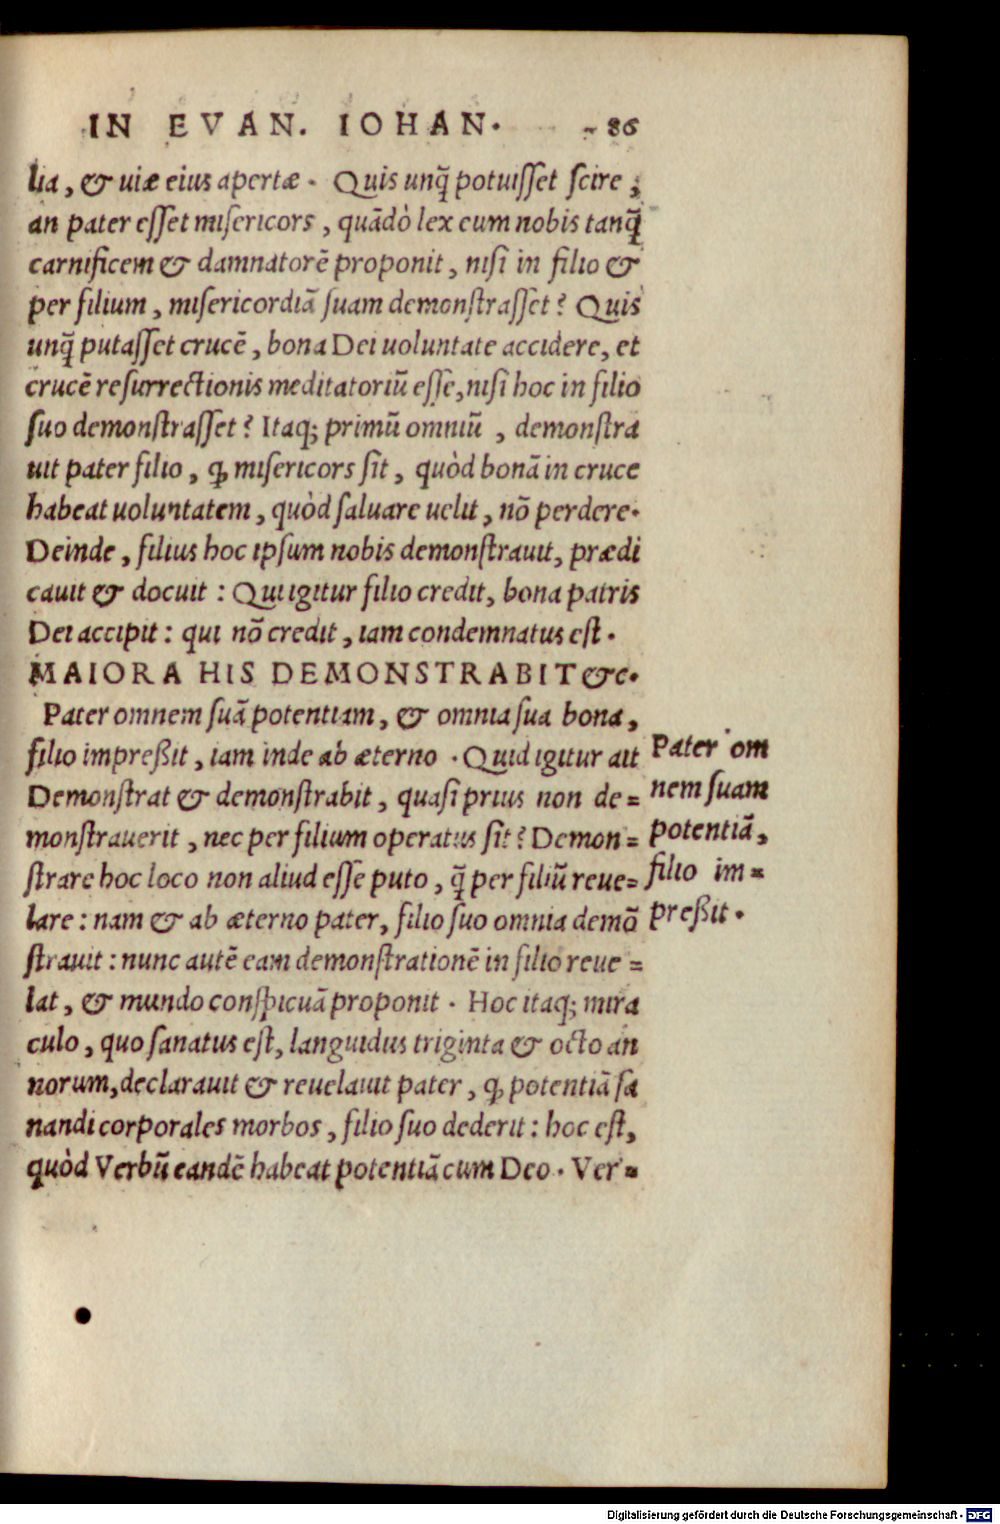 IN EVAN. IOHAN. 86
lia, & uiæ eius apertæ. Quis unq̃ potuisset scire,
an pater esset misericors, quãdò lex eum nobis tanq̃
carnificem & damnatorẽ proponit, nisi in filio &
per filium, misericordiã suam demonstrasset? Quis
unq̃ putasset crucẽ, bona Dei uoluntate accidere, et
crucẽ resurrectionis meditatoriũ esse, nisi hoc in filio
suo demonstrasset? Itaq; primũ omniũ, demonstra
uit pater filio, ꝙ misericors sit, quòd bonã in cruce
habeat uoluntatem, quòd saluare uelit, nõ perdere.
Deinde, filius hoc ipsum nobis demonstrauit, prædi
cauit & docuit: Qui igitur filio credit, bona patris
Dei accipit: qui nõ credit, iam condemnatus est.
MAIORA HIS DEMONSTRABIT &c.
Pater omnem suã potentiam, & omnia sua bona,
filio impreßit, iam inde ab æterno. Quid igitur ait
Demonstrat & demonstrabit, quasi prius non de=
monstrauerit, nec per filium operatus sit? Demon=
strare hoc loco non aliud esse puto, q̃ per filiũ reue=
lare: nam & ab æterno pater, filio suo omnia demõ
strauit: nunc autẽ eam demonstrationẽ in filio reue=
lat, & mundo conspicuã proponit. Hoc itaq; mira
culo, quo sanatus est, languidus triginta & octo an
norum, declarauit & reuelauit pater, ꝙ potentiã sa
nandi corporales morbos, filio suo dederit: hoc est,
quòd Verbũ eandẽ habeat potentiã cum Deo. Ver=
Pater om
nem suam
potentiã,
filio im=
preßit.
Digitalisierung gefördert durch die Deutsche Forschungsgemeinschaft - DFG